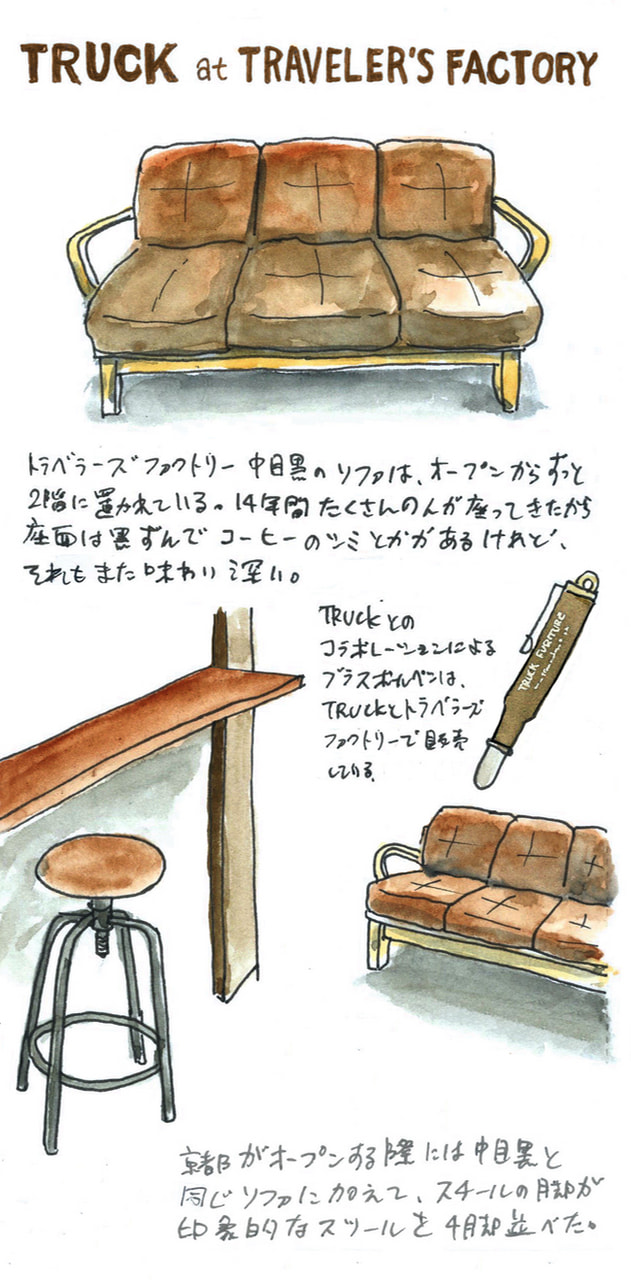 TRUCK at TRAVELER'S FACTORY
トラベラーズファクトリー中目黒のソファは、オープンからずっと
2階に置かれている。14年間たくさんの人が座ってきたから
座面は黒ずんでコーヒーのシミとかがあるけれど、
それもまた味わい深い。
TRUCKとの
コラボレーションによる
ブラスボールペンは、
TRUCKとトラベラーズ
ファクトリーで販売
している。
TRUCK FURNITURE
京都がオープンする際には中目黒と
同じソファに加えて、スチールの脚が
印象的なスツールを4脚並べた。